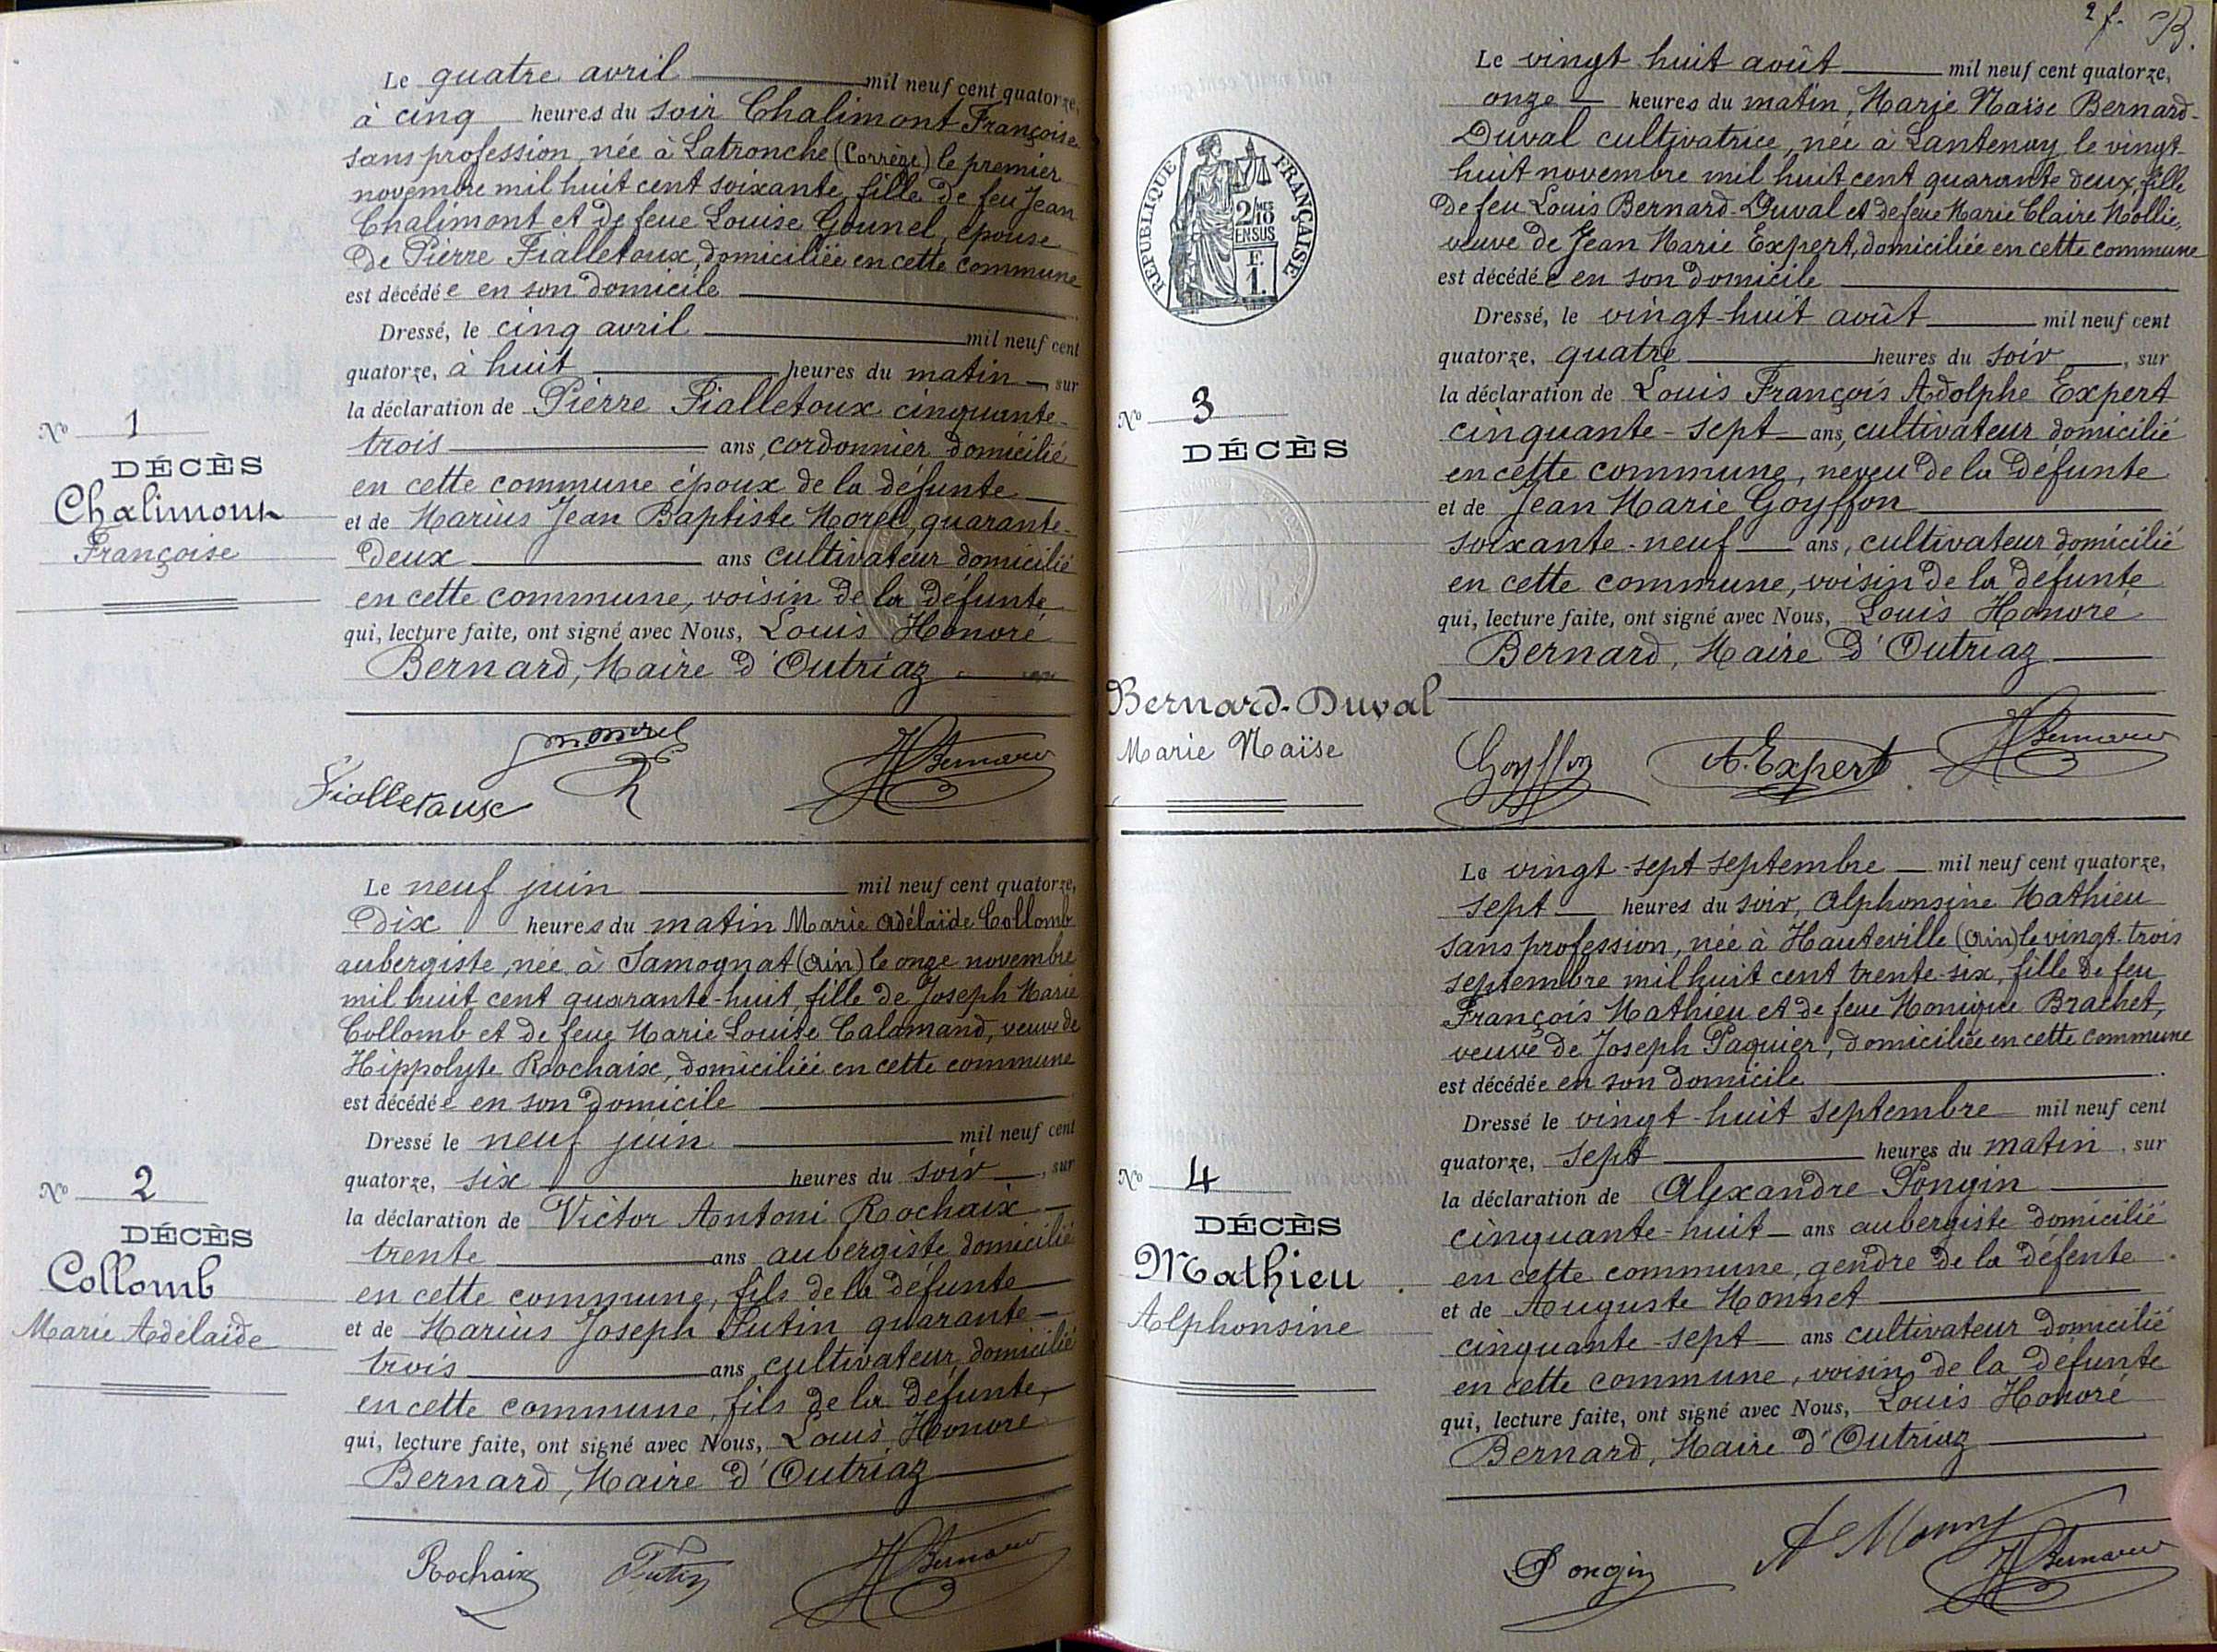 Le quatre avril mil neuf cent quatorze,
à cinq heures du soir Chalimont Françoise
sans profession, née à Latronche (Corrèze) le premier
novembre mil huit cent soixante, fille de feu Jean
Chalimont et de feue Louise Gounel, épouse
de Pierre Fialletoux, domiciliée en cette commune
est décédée en son domicile
Dressé, le cinq avril mil neuf cent
quatorze, à huit heures du matin, sur
la déclaration de Pierre Fialletoux cinquante-
trois ans, cordonnier domicilié
en cette commune époux de la défunte
et de Marius Jean Baptiste Morel, quarante-
deux ans cultivateur domicilié
en cette commune, voisin de la défunte
qui, lecture faite, ont signé avec Nous, Louis Honoré
Bernard, Maire d'Outriaz
No 1
DÉCÈS
Chalimont
Françoise
Fialletoux
Morel
H Bernard
Le neuf juin mil neuf cent quatorze,
Dix heures du matin Marie Adélaïde Collomb
aubergiste, née à Samognat (Ain) le onze novembre
mil huit cent quarante-huit, fille de Joseph Marie
Collomb et de feue Marie Louise Calamand, veuve de
Hippolyte Rochaix, domiciliée en cette commune
est décédée en son domicile
Dressé le neuf juin mil neuf cent
quatorze, six heures du soir, sur
la déclaration de Victor Antoni Rochaix
trente ans aubergiste domicilié
en cette commune, fils de la défunte
et de Marius Joseph Putin quarante-
trois ans cultivateur domicilié
en cette commune, fils de la défunte,
qui, lecture faite, ont signé avec Nous, Louis Honoré
Bernard, Maire d'Outriaz
No 2
DÉCÈS
Collomb
Marie Adélaïde
Rochaix
Putin
H Bernard
2 f. B.
RÉPUBLIQUE FRANÇAISE
2/10 MES
EN SUS
F.
1.
Le vingt huit août mil neuf cent quatorze,
onze heures du matin, Marie Naïse Bernard-
Duval cultivatrice, née à Lantenay le vingt-
huit novembre mil huit cent quarante deux, fille
de feu Louis Bernard-Duval et de feue Marie Claire Mollie,
veuve de Jean Marie Expert, domiciliée en cette commune
est décédée en son domicile
Dressé, le vingt-huit août mil neuf cent
quatorze, quatre heures du soir, sur
la déclaration de Louis François Adolphe Expert
cinquante-sept ans, cultivateur domicilié
en cette commune, neveu de la défunte
et de Jean Marie Goyffon
soixante-neuf ans, cultivateur domicilié
en cette commune, voisin de la défunte
qui, lecture faite, ont signé avec Nous, Louis Honoré
Bernard, Maire d'Outriaz
No 3
DÉCÈS
Bernard-Duval
Marie Naïse
Goyffon
A. Expert
H Bernard
Le vingt-sept septembre mil neuf cent quatorze,
sept heures du soir, Alphonsine Mathieu
sans profession, née à Hauteville (Ain) le vingt-trois
septembre mil huit cent trente-six, fille de feu
François Mathieu et de feue Monique Brachet,
veuve de Joseph Paquier, domiciliée en cette commune
est décédée en son domicile
Dressé le vingt-huit septembre mil neuf cent
quatorze, sept heures du matin, sur
la déclaration de Alexandre Pongin
cinquante-huit ans aubergiste domicilié
en cette commune, gendre de la défente
et de Auguste Monnet
cinquante-sept ans cultivateur domicilié
en cette commune, voisin de la défunte
qui, lecture faite, ont signé avec Nous, Louis Honoré
Bernard, Maire d'Outriaz
No 4
DÉCÈS
Mathieu
Alphonsine
Pongin
H Bernard